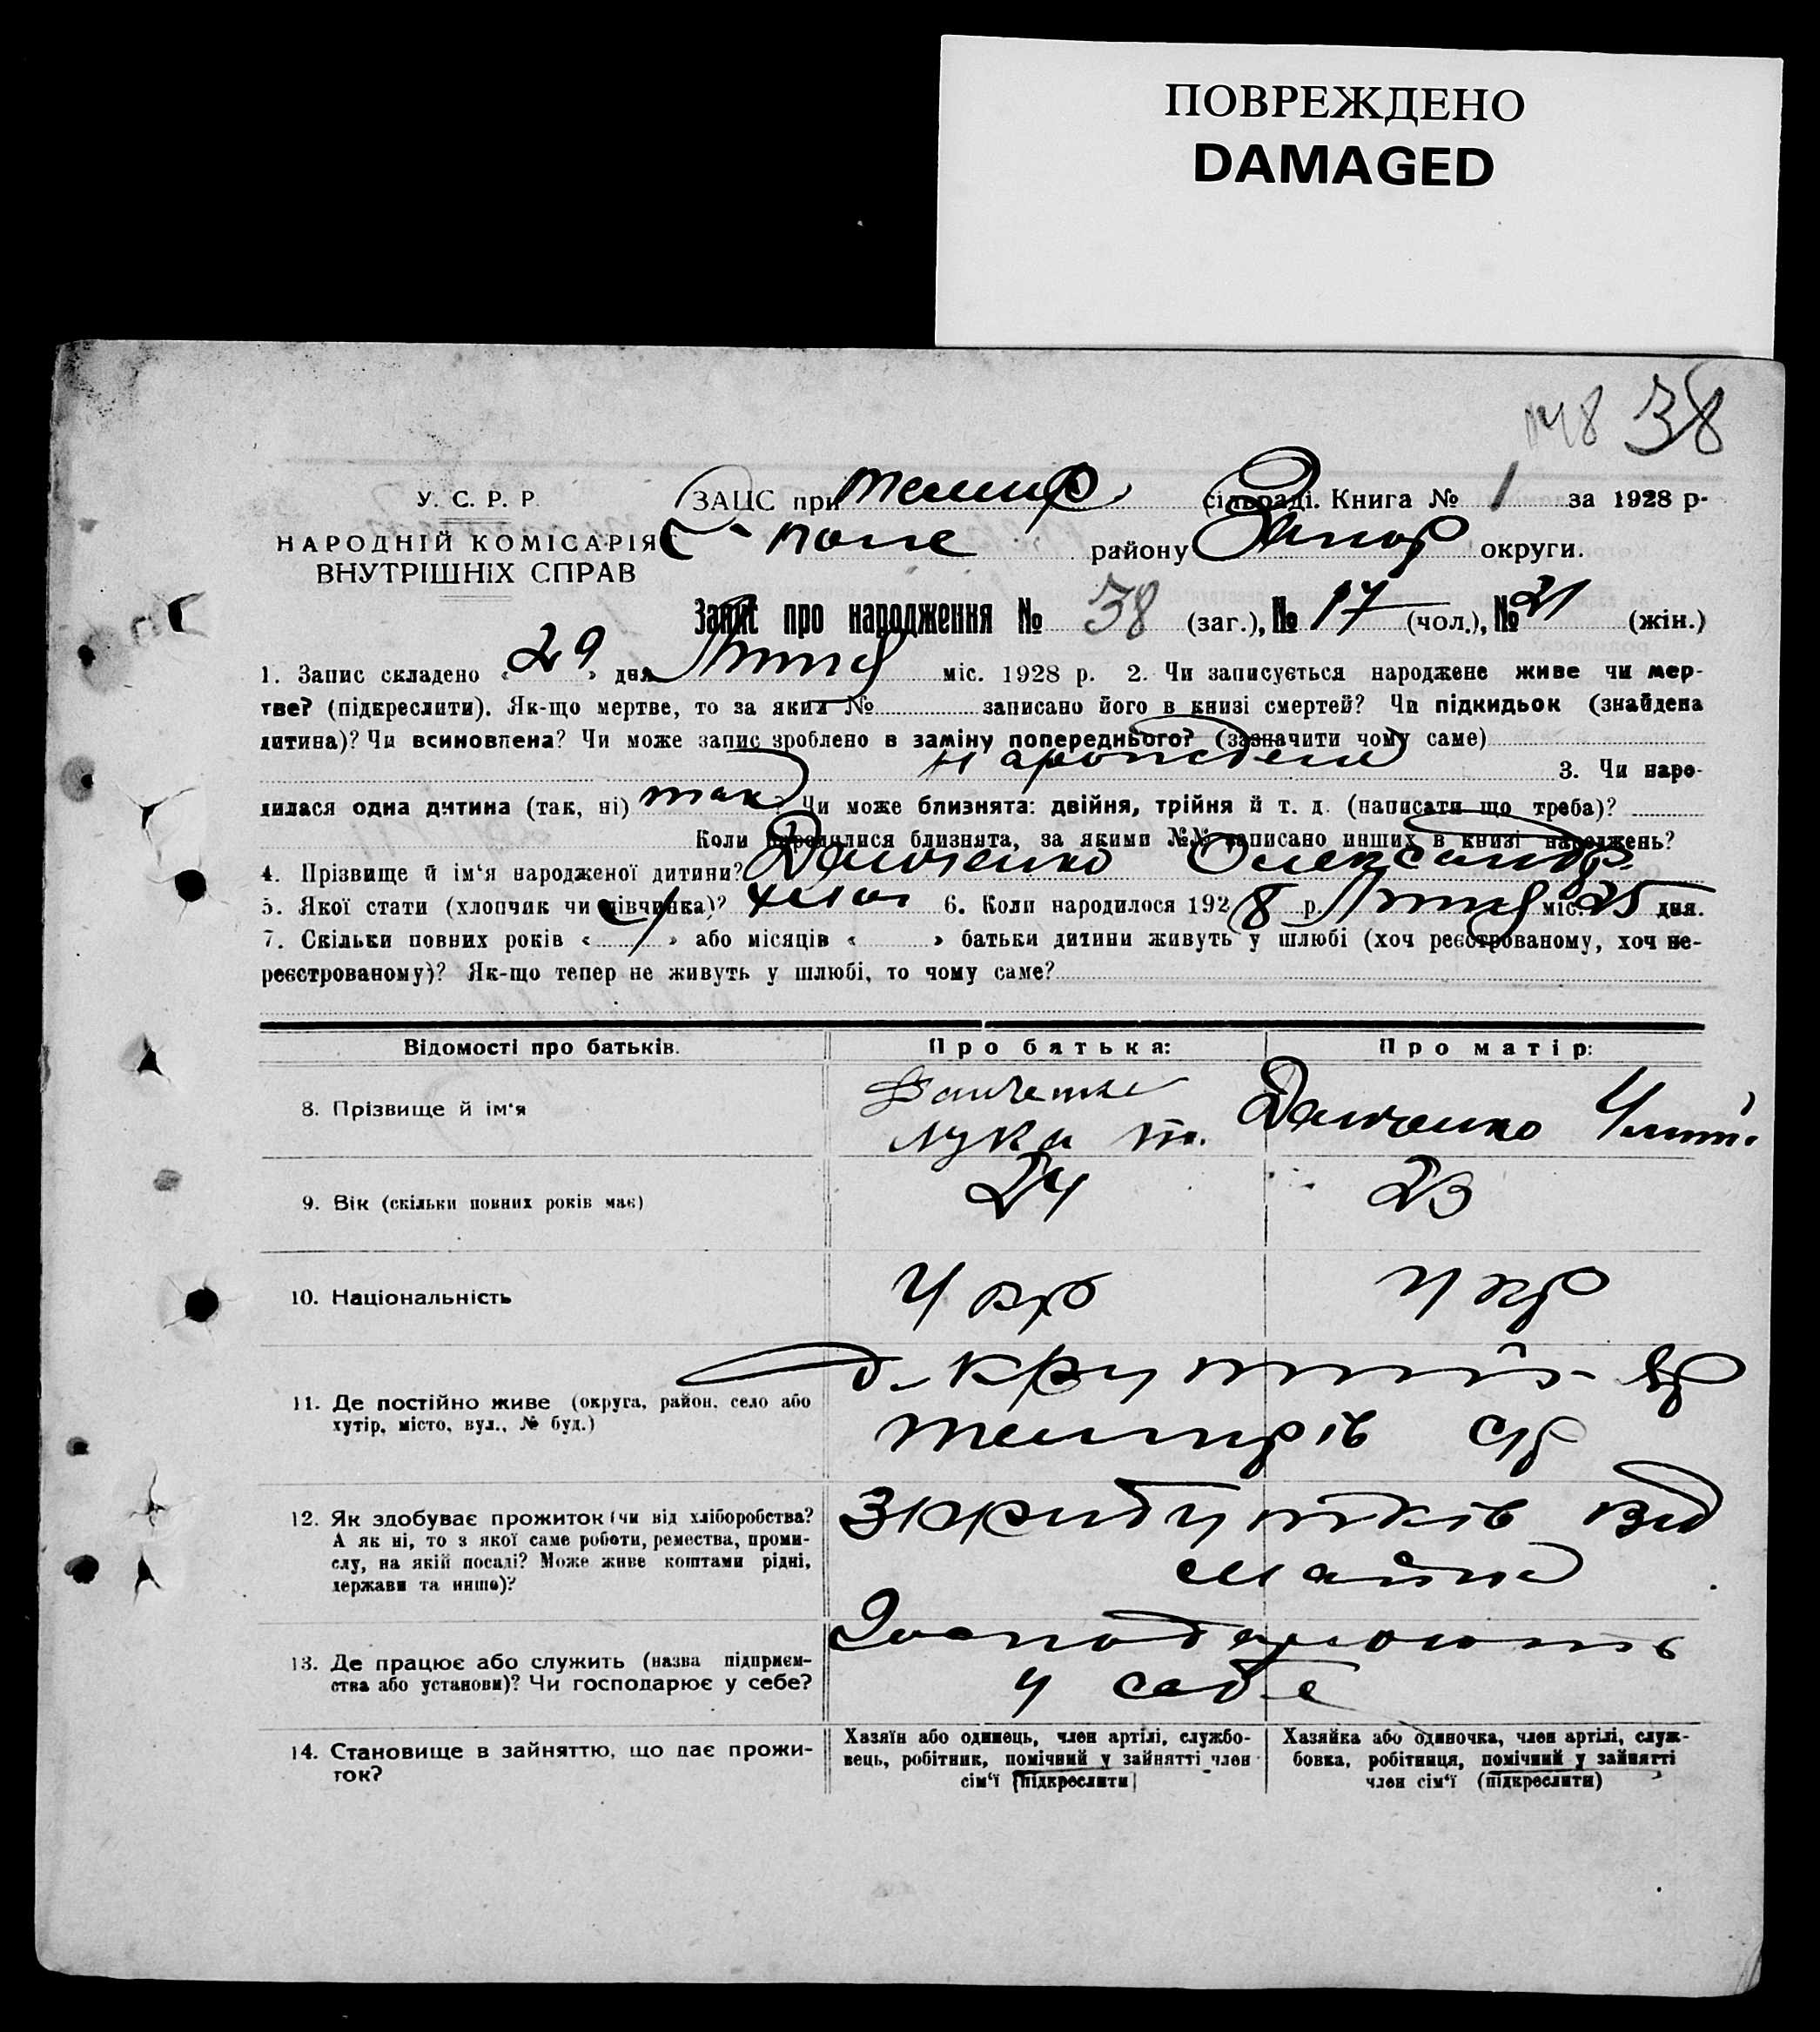 ПОВРЕЖДЕНО
DAMAGED
38
У. С. Р. Р.
НАРОДНІЙ КОМІСАРІЯТ
ВНУТРІШНІХ СПРАВ
ЗАЦС при Темир. сільраді. Книга № 1 за 1928 р.
поле району Запор округи.
Запис про народження № 38 (заг.), № 17 (чол.), № 21 (жін.)
1. Запис складено « 29 » дня міс. 1928 р. 2. Чи записується народжене живе чи мер-
тве? (підкреслити). Як-що мертве, то за яким № записано його в книзі смертей? Чи підкидьок (знайдена
дитина)? Чи всиновлена? Чи може запис зроблено в заміну попереднього? (зазначити чому саме)
3. Чи наро-
дилася одна дитина (так, ні) так Чи може близнята: двійня, трійня й т. д. (написати що треба)?
Коли народилися близнята, за якими №№ записано инших в книзі народжень?
4. Прізвище й ім‘я народженої дитини? Данченко Олександр
5. Якої стати (хлопчик чи дівчинка)? чолов 6. Коли народилося 192 8 р. міс. 25 дня.
7. Скільки повних років « 1 » або місяців « » батьки дитини живуть у шлюбі (хоч реєстрованому, хоч не-
реєстрованому)? Як-що тепер не живуть у шлюбі, то чому саме?
Відомості про батьків. Про батька: Про матір:
8. Прізвище й ім‘я Данченко Лука Т. Данченко
9. Вік (скільки повних років має) 24 23
10. Національність Укр Укр
11. Де постійно живе (округа, район, село або
хутір, місто, вул., № буд.)
12. Як здобуває прожиток (чи від хліборобства?
А як ні, то з якої саме роботи, ремества, проми-
слу, на якій посаді? Може живе коштами рідні,
держави та инше)?
З прибутків від
майна
13. Де працює або служить (назва підприєм-
ства або установи)? Чи господарює у себе?
Господарюють
у себе
14. Становище в зайняттю, що дає прожи-
ток?
Хазяїн або одинець, член артілі, службо-
вець, робітник, помічний у зайнятті член
сім‘ї (підкреслити)
Хазяйка або одиночка, член артілі, служ-
бовка, робітниця, помічний у зайнятті
член сім‘ї (підкреслити)